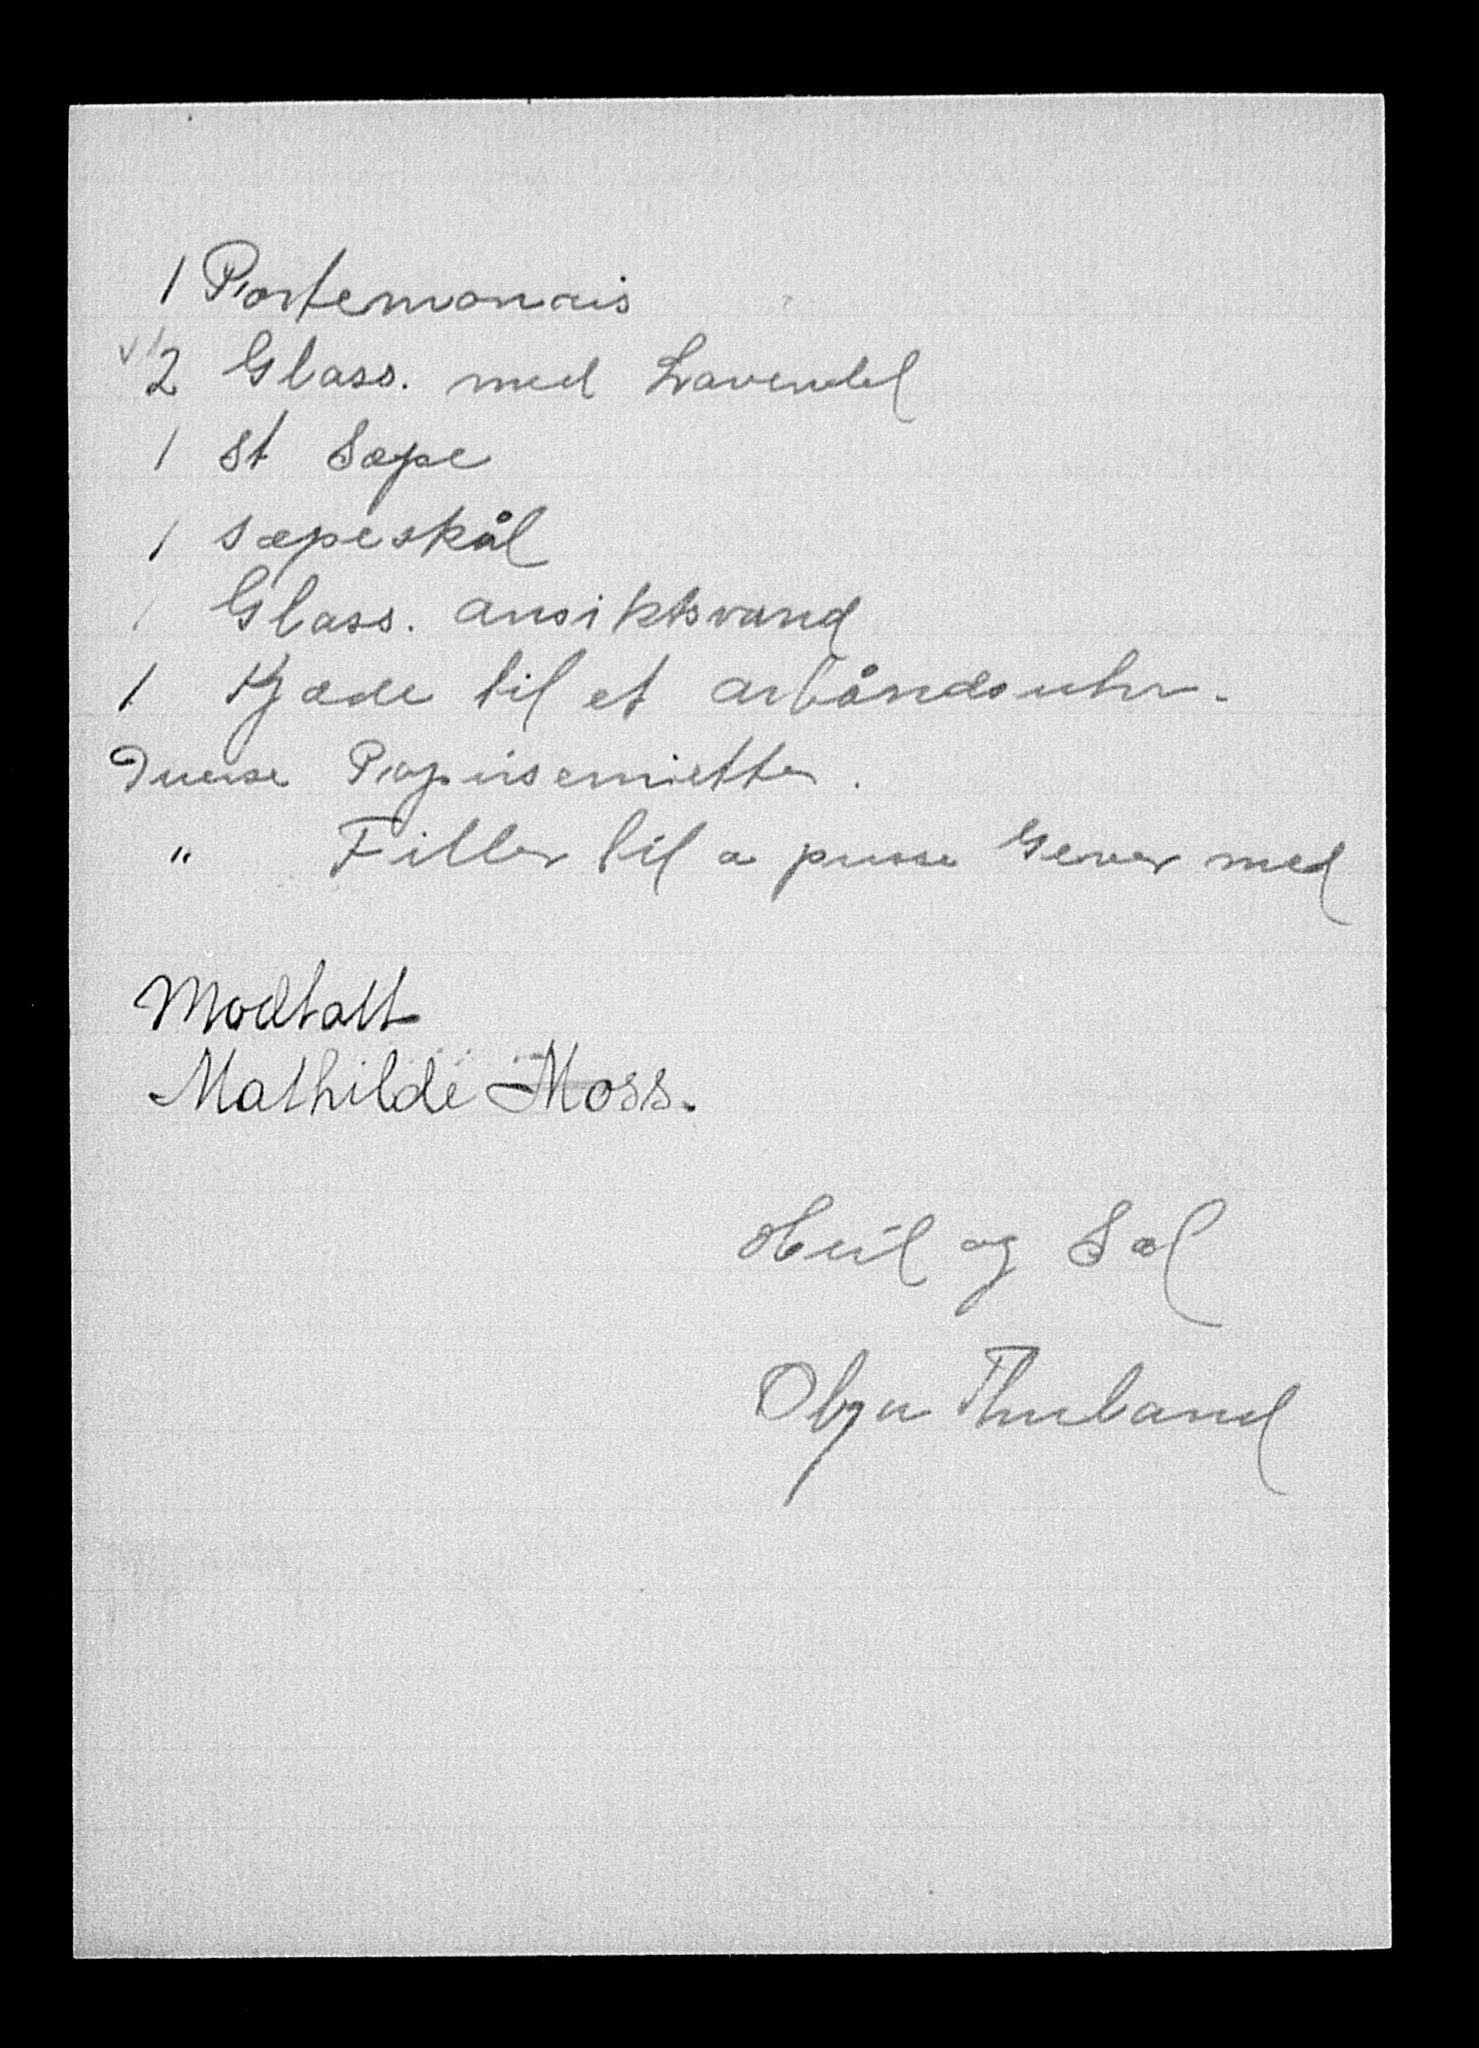 1 Portemonais
2 Glass. med Lavendel
1 st Sæpe
1 sæpeskål
1 Glass. ansiktsvand
1 Kjæde til et arbåndsuhr.
Diverse Papirservietter.
" Filler til a pusse Gever med
Modtatt
Mathilde Moss.
Heil og Sæl
Olga Thuland